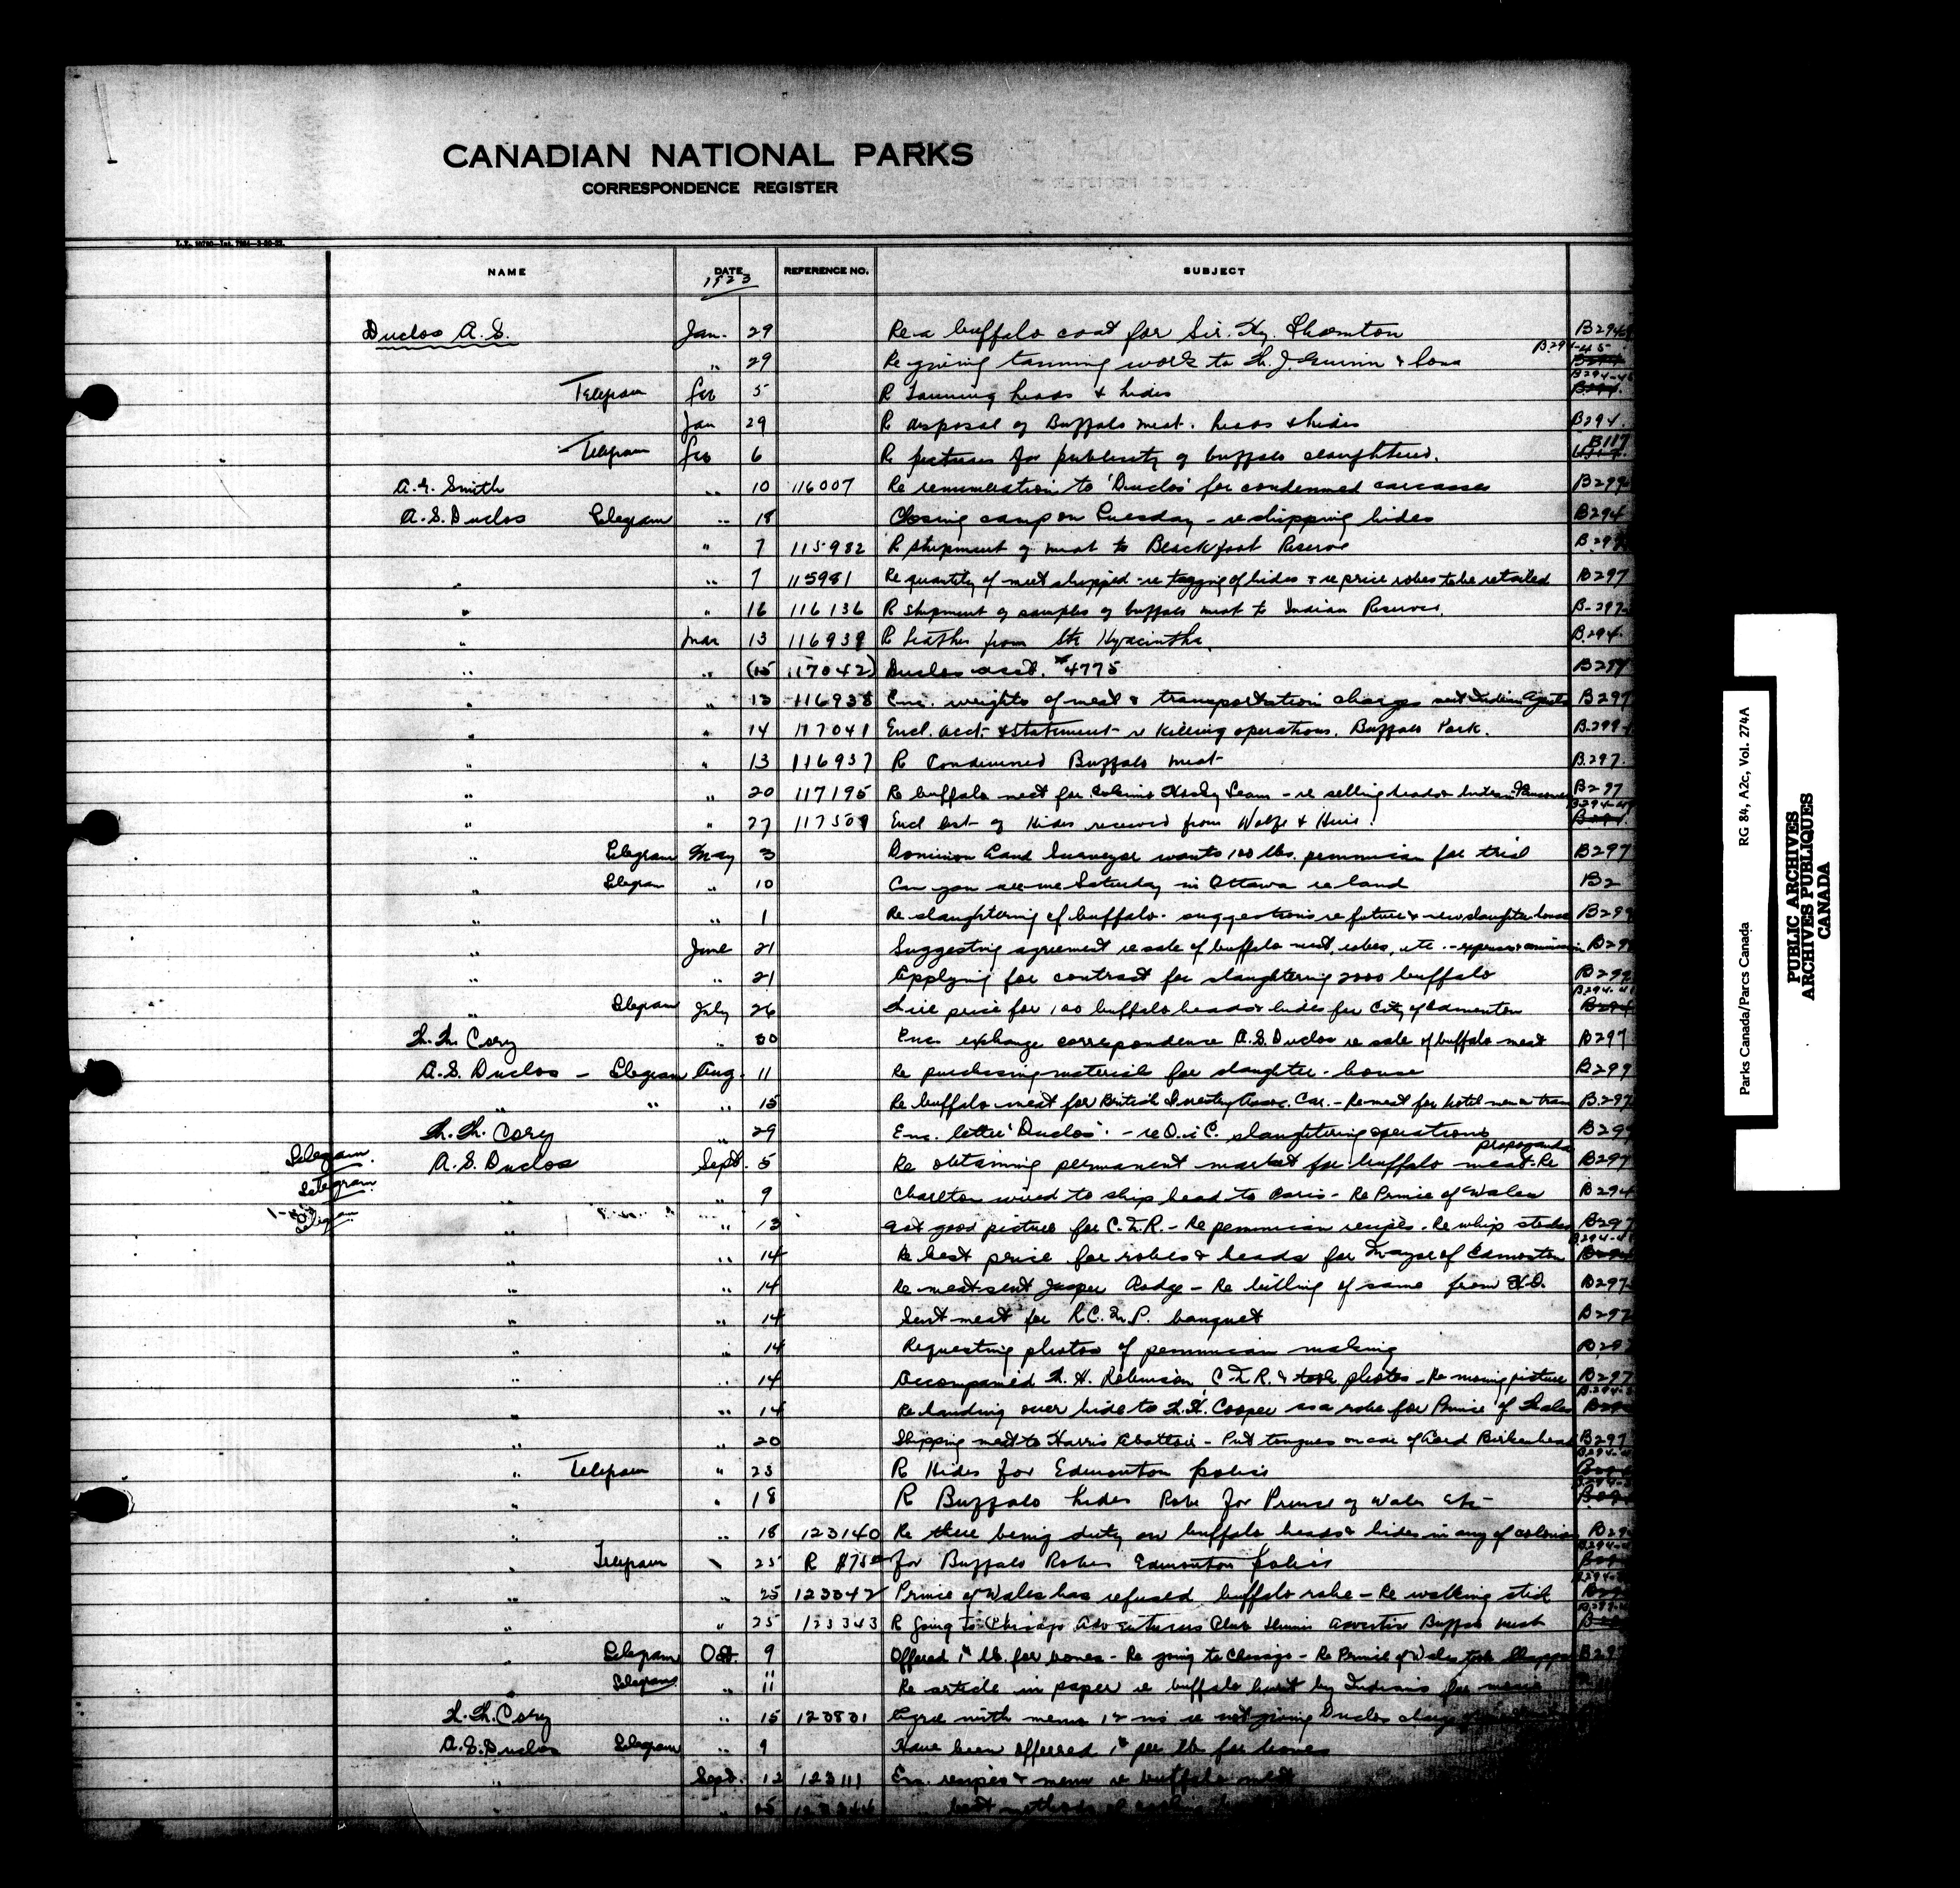 CANADIAN NATIONAL PARKS
CORRESPONDENCE REGISTER
NAME DATE REFERENCE NO. SUBJECT
1923
Duclos A. S. Jan. 29 Re a buffalo coat for Sir. Hy. Thornton
" 29 Re giving tanning work to & Sons B294-45
Telegram Feb 5 R Tanning heads & hides
Jan 29 R disposal of Buffalo meat. heads & hides B294.
Telegram Feb 6 R pictures for publicity of buffalo slaughtered. B117
A. E. Smith " 10 116007 Re remuneration to 'Duclos' for condemned carcasses B299
A. S. Duclos Telegram " 18 Closing camp on Tuesday - re shipping hides B294
" 7 115982 R shipment of meat to Blackfoot Reserve
" " 7 115981 Re quantity of meat shipped - re tagging of hides & re price robes to be retailed B297
" " 16 116136 R shipment of samples of buffalo meat to Indian Reserves. B-297
" Mar 13 116939 R leather from Ste Hyacinthe. B.294.
" " (15 117042) Duclos acct. #4775 B297
" " 13 116938 Enc. weights of meat & transportation charges sent Indian Agents B297
" " 14 117041 Encl. acct. & statement re killing operations. Buffalo Park. B.299
" " 13 116937 R Condemned Buffalo meat B.297.
" " 20 117195 Re buffalo meat for Eskimo Hockey Team - re selling heads B297
" " 27 117509 Encl list of Hides received from
" Telegram May 3 Dominion Land Surveyor wants 100 lbs. pemmican for trial B297
" Telegram " 10 Can you see me Saturday in Ottawa re land B2
" " 1 Re slaughtering of buffalo - suggestions re future & new slaughter house B299
" June 21 Suggesting agreement re sale of buffalo meat, robes, etc. - expenses & commission
" " 21 Applying for contract for slaughtering 2000 buffalo B299
" Telegram July 26 price for 100 buffalo heads & hides for City of Edmonton
W. W. Cory " 30 Enc. exchange correspondence A.S. Duclos re sale of buffalo meat B297
A. S. Duclos - Telegram Aug. 11 Re purchasing material for slaughter-house B299
" " " 15 Re buffalo meat for British Assoc. Car. - Re meat for hotel B.297
W. W. Cory " 29 Enc. letter 'Duclos'. - re O. in C. slaughtering operations B299
Telegram. A. S. Duclos Sept. 5 Re obtaining permanent market for buffalo meat - Re propaganda B297
Telegram " " 9 Charlton wired to ship head to Paris - Re Prince of Wales B294
Telegram " " 13 Got good picture for C.N.R. - Re pemmican recipes. Re whip B297
" " 14 Re best price for robes & heads for Mayor of Edmonton
" " 14 Re meat sent Jasper Lodge - Re billing of same from H.O. B297
" " 14 Sent meat for R.C.M.P. banquet B297
" " 14 Requesting photos of pemmican making
" " 14 Accompanied W. H. Robinson, C.N.R. & took photos - Re moving picture B297
" " 14 Re handing over hide to Cooper as a robe for Prince of Wales
" " 20 Shipping meat to Harris Abattoir - Put tongues on car of Lord Birkenhead B297
" Telegram " 25 R Hides for Edmonton police
" " 18 R Buffalo hides Robe for Prince of Wales etc
" " 18 123140 Re there being duty on buffalo heads & hides in any of colonies
Telegram " 25 R $75 for Buffalo Robes Edmonton police
" " 25 123342 Prince of Wales has refused buffalo robe - Re walking stick
" " 25 123343 R going to Chicago Adventurers Club dinner advertise Buffalo meat
" Telegram Oct. 9 Offered 1¢ lb. for bones - Re going to Chicago - Re Prince of Wales
" Telegram " 11 Re article in paper re buffalo hunt by Indians for movie
W. W. Cory " 15 123831 Agree with memo re not giving Duclos charge
A. S. Duclos Telegram " 9 Have been offered 1¢ per lb for bones
" Sept. 12 123111 Enc. recipes & menu re buffalo meat
" " best methods of
Parks Canada/Parcs Canada RG 84, A2c, Vol. 274A
PUBLIC ARCHIVES
ARCHIVES PUBLIQUES
CANADA